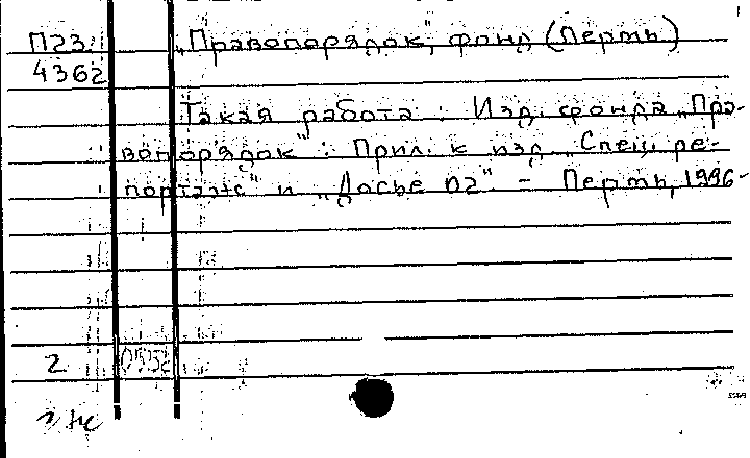 П23 „Правопорядок", фонд (Пермь)
4362
Такая работа : Изд. фонда „Пра-
вопорядок" : Прил. к изд. „Спец. ре-
портаж" и „Досье 02". – Пермь, 1996-
2